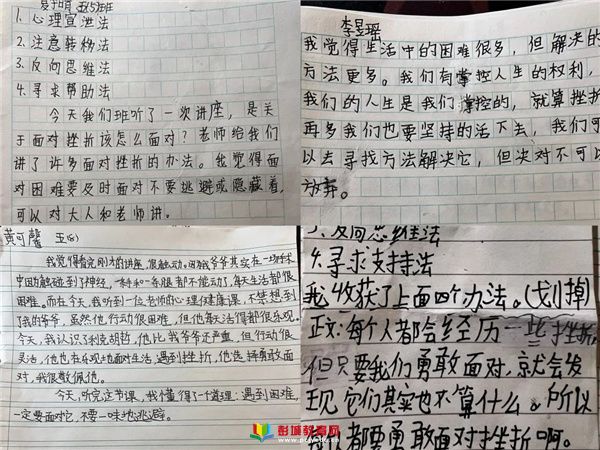 五(5)班
1. 心理宣泄法
2. 注意转移法
3. 反向思维法
4. 寻求帮助法
今天我们班听了一次讲座，是关
于面对挫折该怎么面对？老师给我们
讲了许多面对挫折的办法。我觉得面
对困难要及时面对不要逃避或隐藏着，
可以对大人和老师讲。
李昱瑶
我觉得生活中的困难很多，但解决的
方法更多。我们有掌控人生的权利，
我们的人生是我们掌控的，就算挫折
再多我们也要坚持的活下去，我们可
以去寻找方法解决它，但决对不可以
放弃。
黄可馨 五(5)
我觉得看完刚才的讲座，很触动。因为我爷爷其实在一场手术
中因为触碰到了神经，一条胳和一条腿都不能动了，每天生活都很
困难。而在今天，我听到一位老师的心理健康课，不禁想到
了我的爷爷，虽然他行动很困难，但他每天活得都很乐观。
今天，我认识了利克胡哲，他比我爷爷还严重，但行动很
灵活，他也在乐观地面对生活，遇到挫折，他选择勇敢面
对，我很敬佩他。
今天，听完这节课，我懂得了一个道理：遇到困难，
一定要面对它，不要一味地逃避。
3. 反向思维法
4. 寻求支持法
我收获了上面四个办法。(划掉)
正文：每个人都会经历一些挫折，
但只要我们勇敢面对，就会发
现它们其实也不算什么。所以
我们都要勇敢面对挫折啊。
彭城教育网